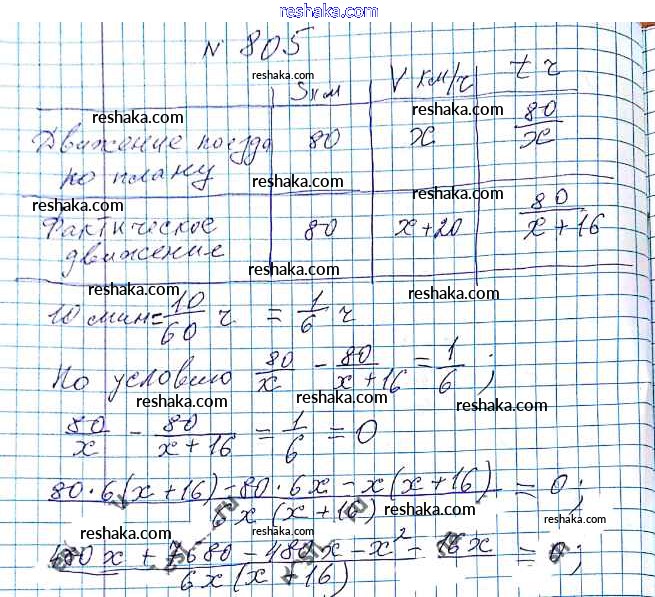 reshaka.com
N 805
reshaka.com
S км V км/ч t ч
reshaka.com reshaka.com reshaka.com
Движение поезда 80 x 80/x
по плану
reshaka.com reshaka.com reshaka.com
Фактическое 80 x+20 80/(x+16)
движение
reshaka.com reshaka.com
10 мин = 10/60 ч = 1/6 ч
По условию 80/x - 80/(x+16) = 1/6 ;
reshaka.com reshaka.com reshaka.com
80/x - 80/(x+16) = 1/6 = 0
reshaka.com reshaka.com
(80·6(x+16) - 80·6x - x(x+16))/(6x(x+16)) = 0;
reshaka.com reshaka.com
(480x + 7680 - 480x - x² - 16x)/(6x(x+16)) = 0;
reshaka.com